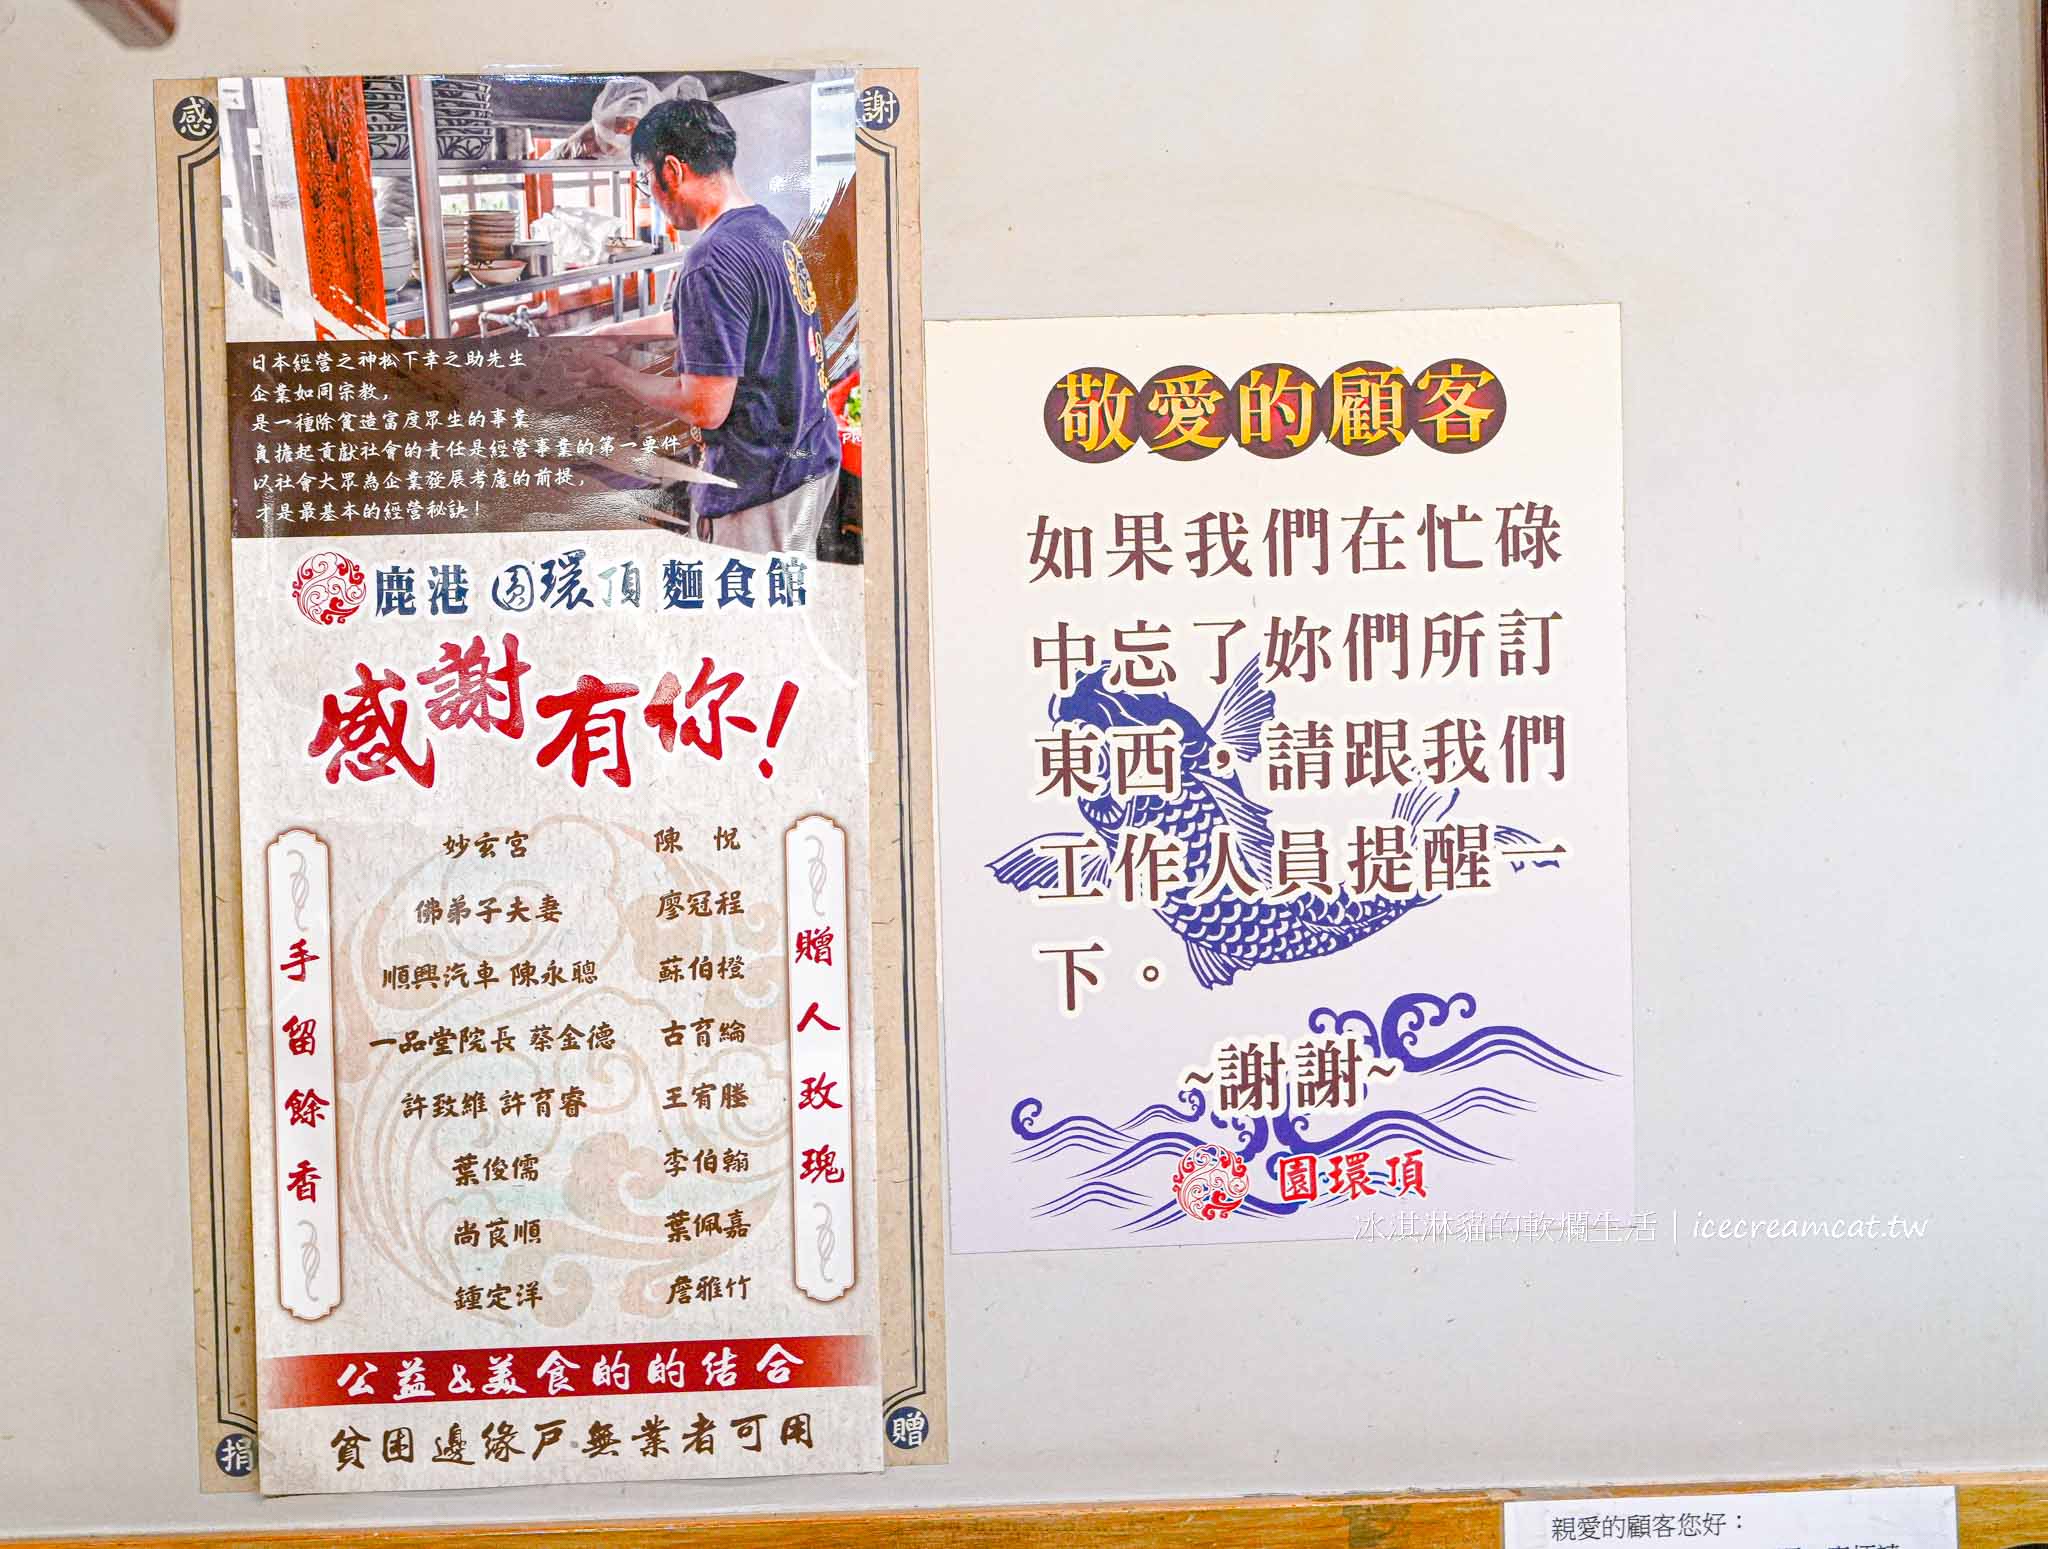 感謝
日本經營之神松下幸之助先生
企業如同宗教，
是一種除貧造富度眾生的事業
負擔起貢獻社會的責任是經營事業的第一要件
以社會大眾為企業發展考慮的前提，
才是最基本的經營秘訣！
鹿港 圓環頂 麵食館
感謝有你！
手留餘香
贈人玫瑰
妙玄宮 陳 悅
佛弟子夫妻 廖冠程
順興汽車 陳永聰 蘇伯橙
一品堂院長 蔡金德 古育綸
許致維 許育睿 王宥勝
葉俊儒 李伯翰
尚莨順 葉佩嘉
鍾定洋 詹雅竹
公益&美食的的結合
貧困邊緣戶無業者可用
捐贈
敬愛的顧客
如果我們在忙碌
中忘了妳們所訂
東西，請跟我們
工作人員提醒一
下。
~謝謝~
圓環頂
冰淇淋貓的軟爛生活 | icecreamcat.tw
親愛的顧客您好：